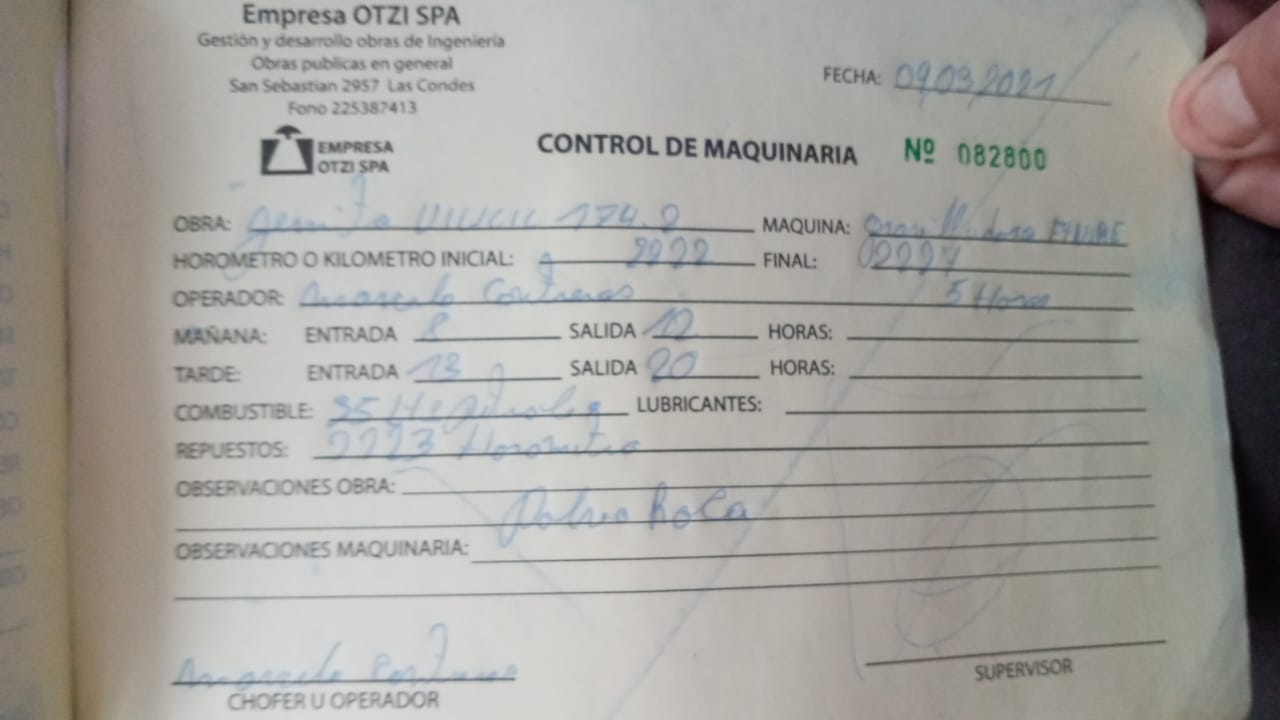 Empresa OTZI SPA
Gestión y desarrollo obras de Ingeniería
Obras publicas en general
San Sebastian 2957 Las Condes
Fono 225387413
FECHA: 09032021
EMPRESA
OTZI SPA
CONTROL DE MAQUINARIA Nº 082800
OBRA: 174.2 MAQUINA:
HOROMETRO O KILOMETRO INICIAL: 2222 FINAL: 02227
OPERADOR: Marcelo Contreras 5 Horas
MAÑANA: ENTRADA 8 SALIDA 12 HORAS:
TARDE: ENTRADA 13 SALIDA 20 HORAS:
COMBUSTIBLE: LUBRICANTES:
REPUESTOS: 2223 Horometro
OBSERVACIONES OBRA:
Polvo Roca
OBSERVACIONES MAQUINARIA:
Marcelo Contreras
CHOFER U OPERADOR
SUPERVISOR